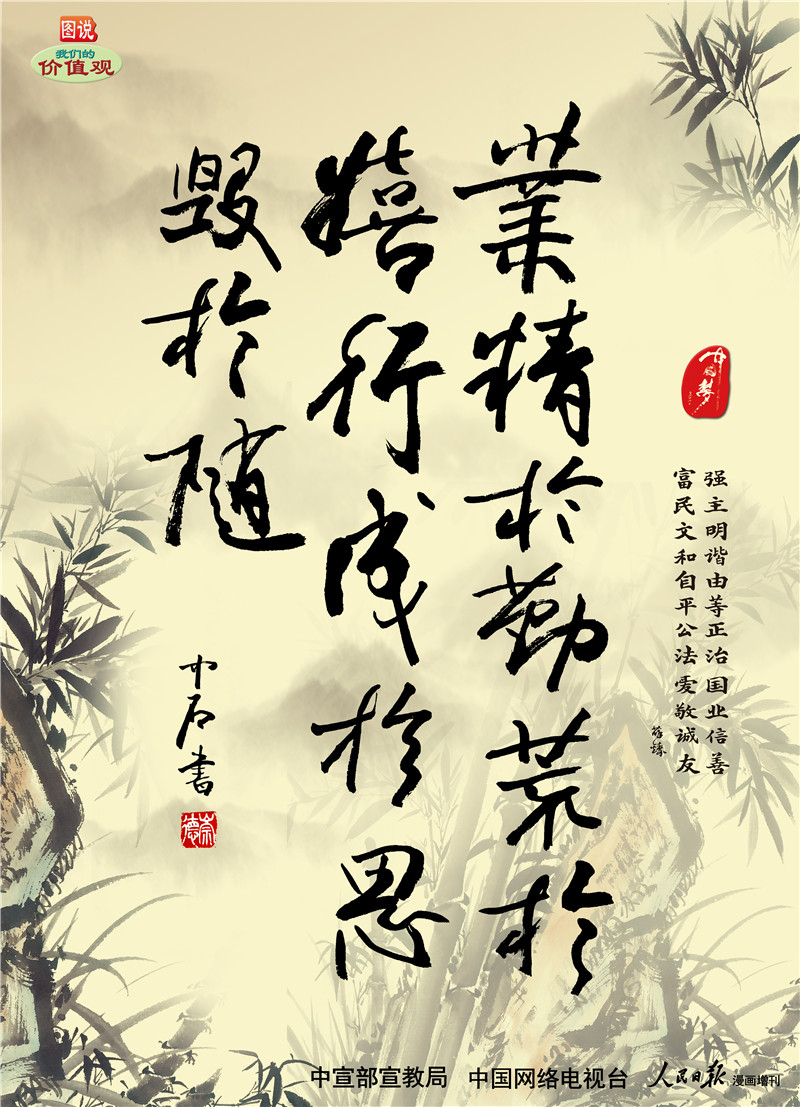 图说
我们的
价值观
業精於勤荒於
嬉行成於思
毁於随
中石書
崇德
中国梦
富强
民主
文明
和谐
自由
平等
公正
法治
爱国
敬业
诚信
友善
中宣部宣教局 中国网络电视台 人民日报 漫画增刊